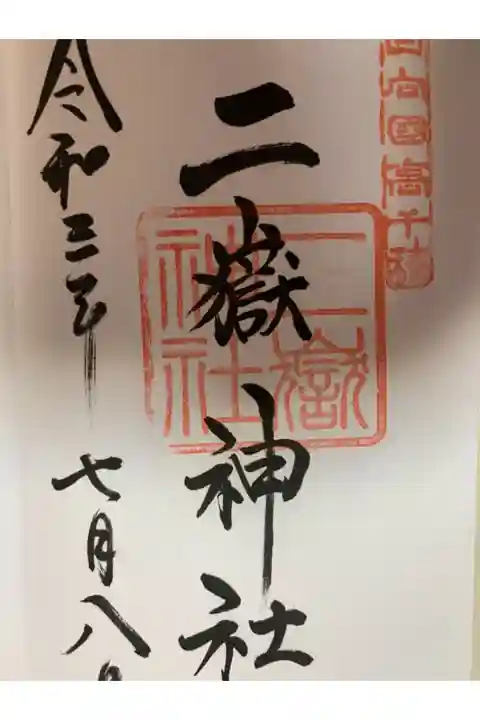 日向國高千穂
二嶽神社
二嶽神社
令和三年 七月八日